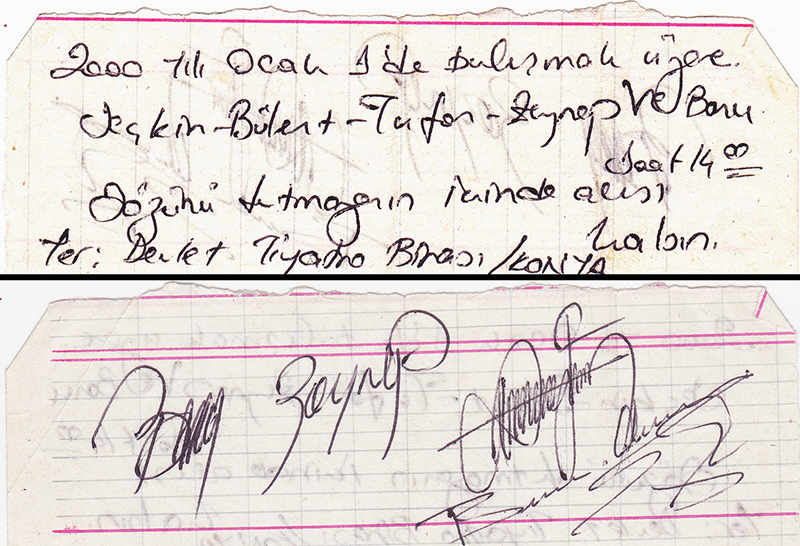 2000 Yılı Ocak 1'de buluşmak üzere.
Seçkin-Bülent-Tufan-Zeynep ve Banu
Saat 14 00
Sözünü tutmayanın içinde acısı
kalsın.
Yer: Devlet Tiyatro Binası/KONYA
Banu Zeynep